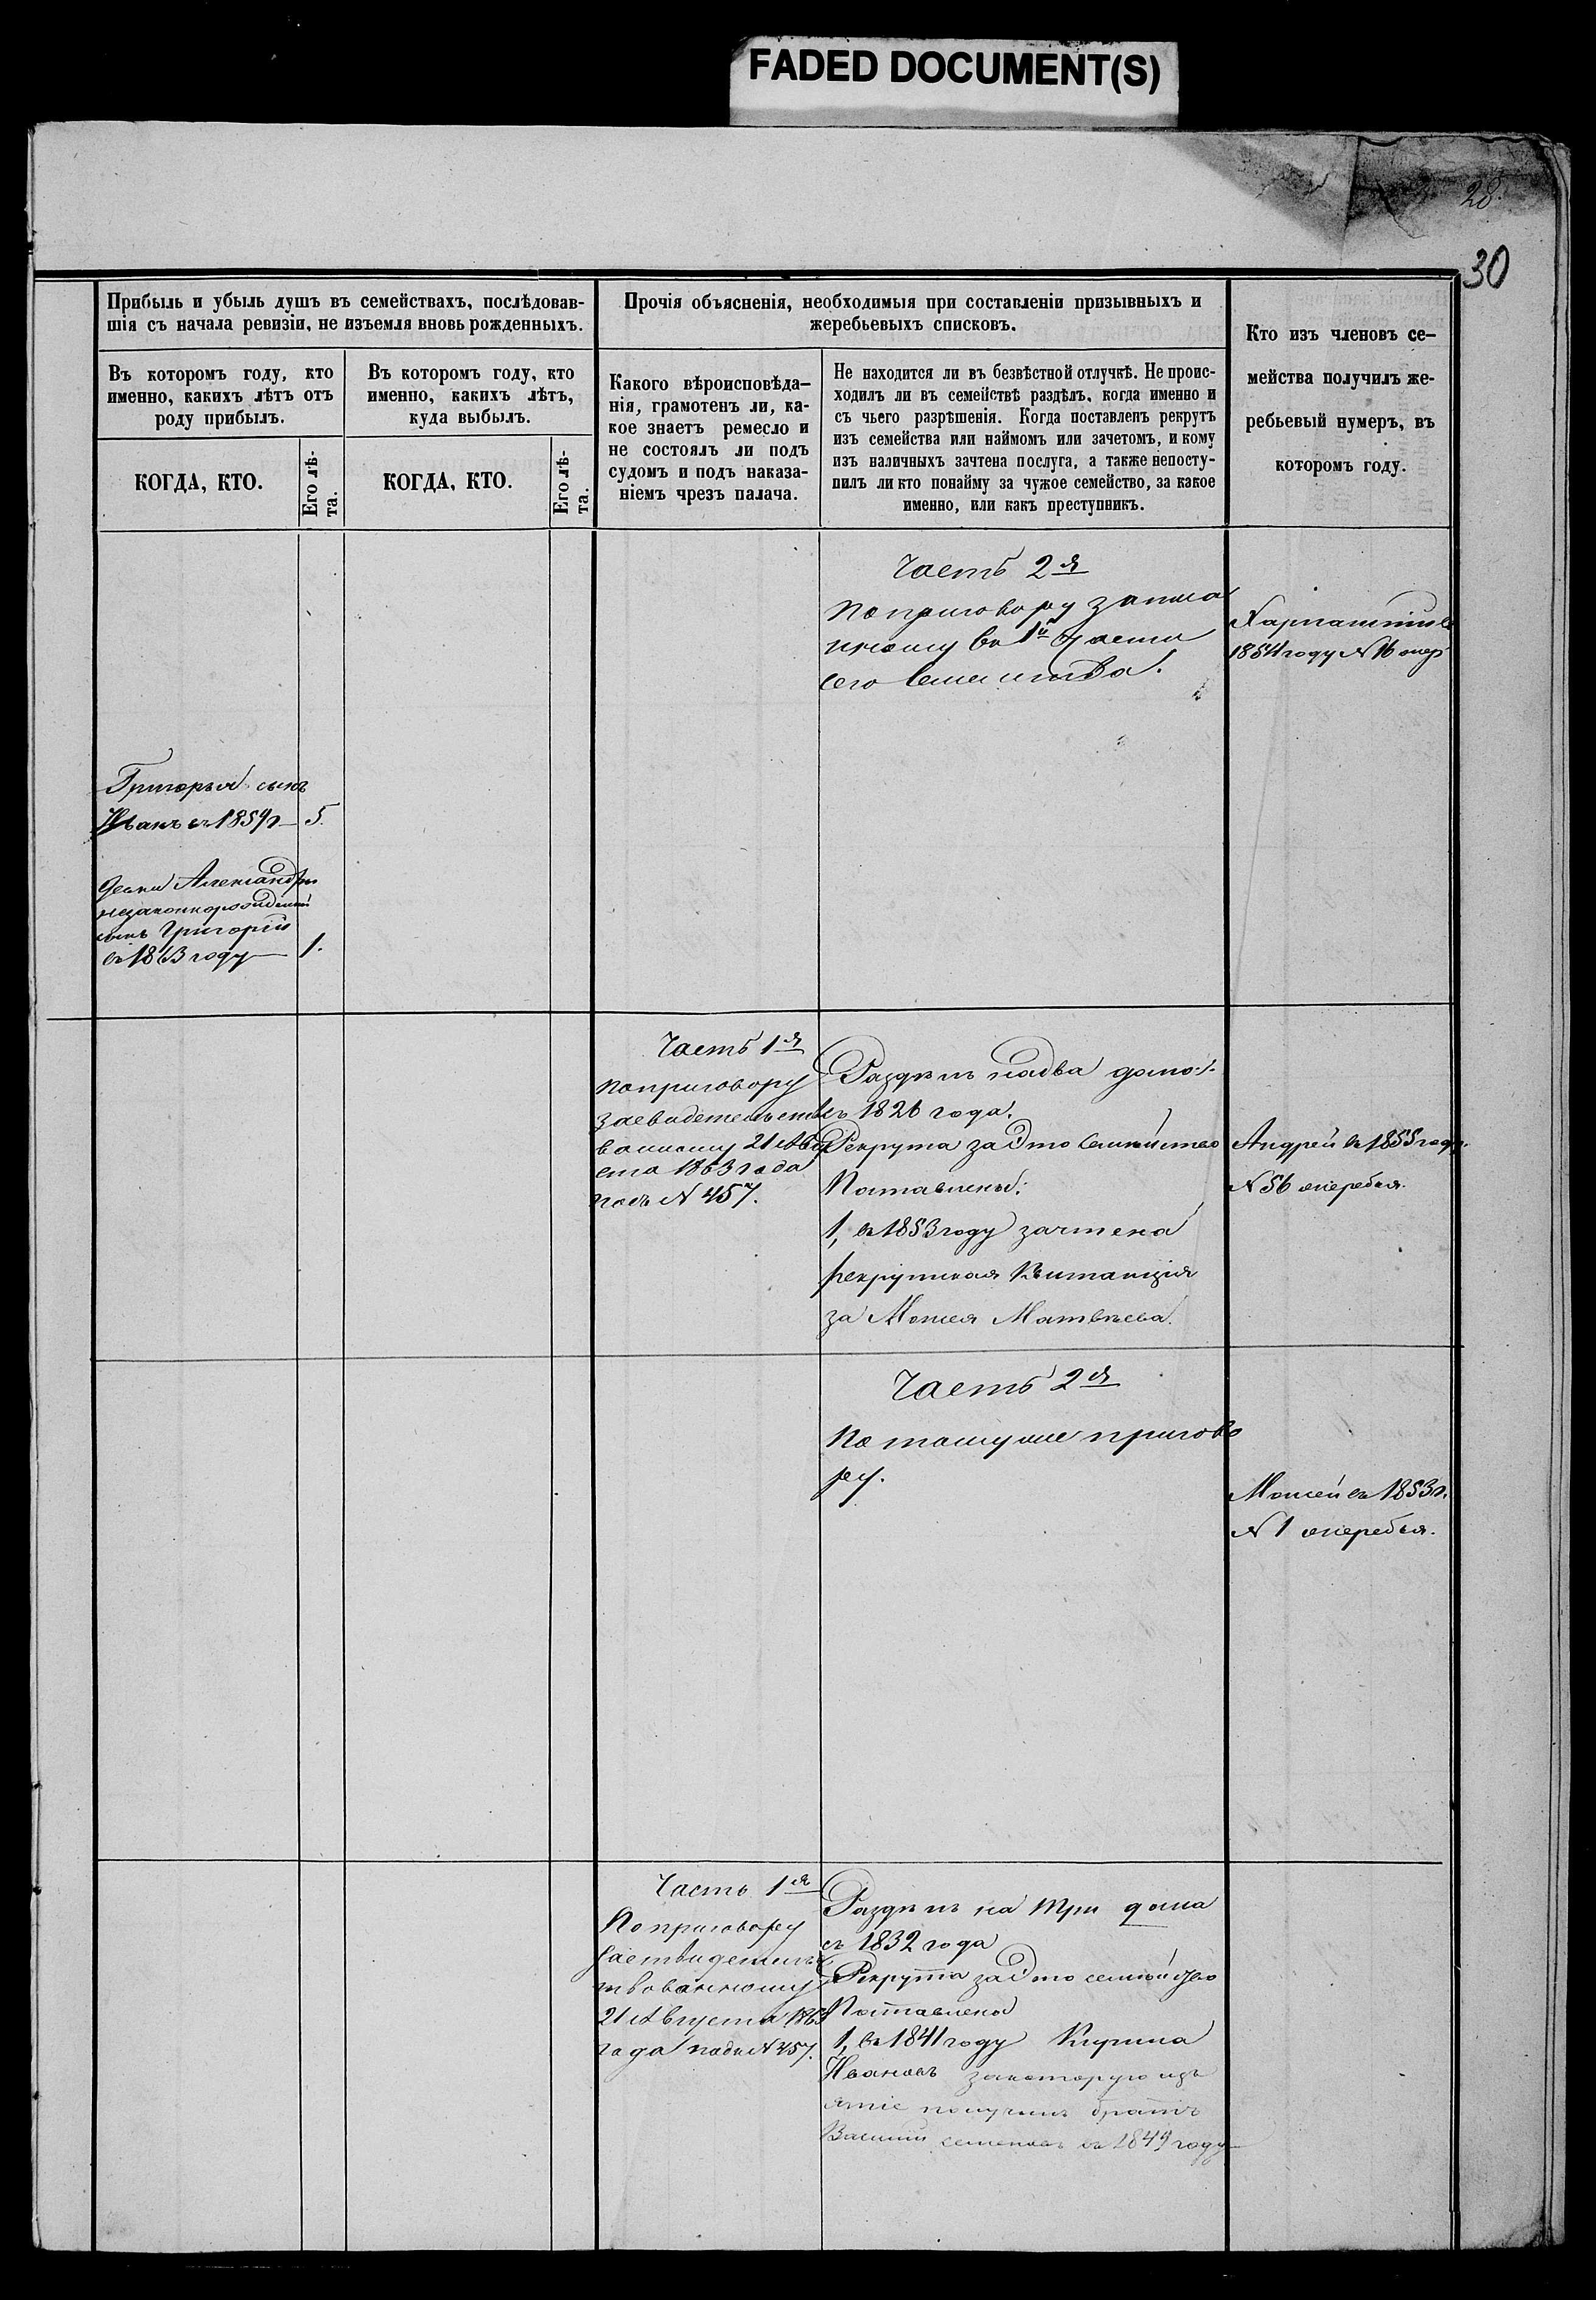 FADED DOCUMENT(S)
28.
30
Прибыль и убыль душъ въ семействахъ, послѣдовав-
шія съ начала ревизіи, не изъемля вновь рожденныхъ.
Въ которомъ году, кто
именно, какихъ лѣтъ отъ
роду прибылъ.
Въ которомъ году, кто
именно, какихъ лѣтъ,
куда выбылъ.
КОГДА, КТО.
Его лѣ-
та.
КОГДА, КТО.
Его лѣ-
та.
Прочія объясненія, необходимыя при составленіи призывныхъ и
жеребьевыхъ списковъ.
Какого вѣроисповѣда-
нія, грамотенъ ли, ка-
кое знаетъ ремесло и
не состоялъ ли подъ
судомъ и подъ наказа-
ніемъ чрезъ палача.
Не находится ли въ безвѣстной отлучкѣ. Не проис-
ходилъ ли въ семействѣ раздѣлъ, когда именно и
съ чьего разрѣшенія. Когда поставленъ рекрутъ
изъ семейства или наймомъ или зачетомъ, и кому
изъ наличныхъ зачтена послуга, а также непосту-
пилъ ли кто понайму за чужое семейство, за какое
именно, или какъ преступникъ.
Кто изъ членовъ се-
мейства получилъ же-
ребьевый нумеръ, въ
которомъ году.
Часть 2я
По приговору записа
нному въ 1й части
сего семейства.
1854 году N 16 жер
Григорья сынъ
Иванъ въ 1859 г
5.
Александры
незаконнорожденный
сынъ Григорій
въ 1863 году
1.
Часть 1я
По приговору
засвидетельство
ванному 21 Авгу
ста 1863 года
подъ N 457.
Раздѣлъ на два дома
съ 1826 года.
Рекрута за Это Семѣйство
Поставлены:
1, въ 1853 году зачтена
рекрутская Квитанція
за Моисея Матвѣева.
Андрей въ 1855 году
N 56 жеребья.
Часть 2я
По тому же пригово
ру.
Моисей въ 1853 г.
N 1 жеребья.
Часть 1я
По приговору
засвидетельс
твованному
21 Августа 1863
года подъ N 457.
Раздѣлъ на три дома
съ 1832 года
Рекрута за Это семѣйство
Поставлена
1, въ 1841 году Кирила
Ивановъ за которую изъ
ятіе получилъ братъ
Василій Семеновъ въ 1849 году